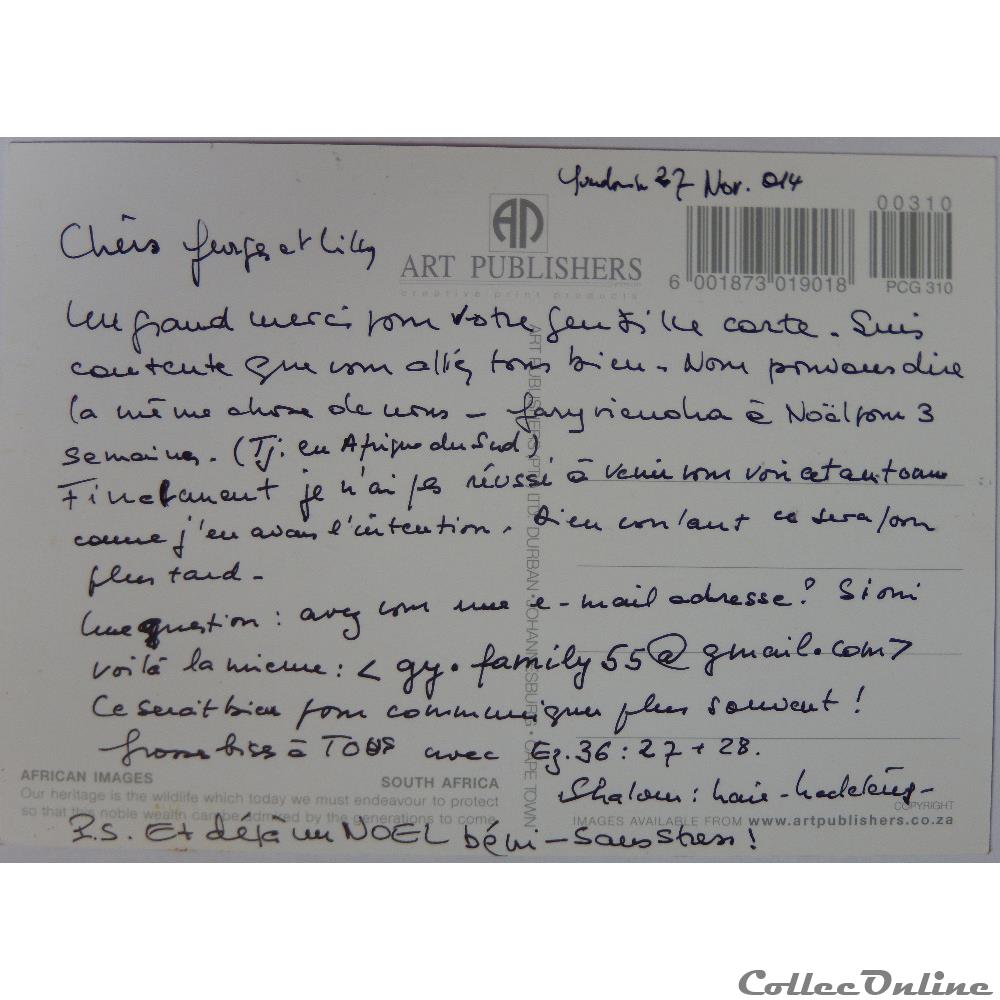 27 Nov. 014
00310
Chers Georges et Lilly
ART PUBLISHERS
creative print products
6 001873 019018
PCG 310
Un grand merci pour votre gentille carte. Suis
contente que vous alliez tous bien. Nous pouvons dire
la même chose de nous - Gary viendra à Noël pour 3
semaines. (Tj. en Afrique du Sud)
Finalement je n'ai pas réussi à venir vous voir cet automne
comme j'en avais l'intention. Bien voulant ce sera pour
plus tard -
Une question : avez vous une e-mail adresse? Si oui
voilà la mienne : < gy.family55@gmail.com>
Ce serait bien pour communiquer plus souvent !
Grosse bise à TOUS avec Ez. 36 : 27 + 28.
AFRICAN IMAGES
SOUTH AFRICA
Shalom : Marie-Madeleine -
Our heritage is the wildlife which today we must endeavour to protect
so that this noble wealth can be admired by the generations to come
COPYRIGHT
IMAGES AVAILABLE FROM www.artpublishers.co.za
P.S. Et déjà un NOEL béni - Sans Stress !
ART PUBLISHERS PTY LTD DURBAN • JOHANNESBURG • CAPE TOWN
CollecOnline